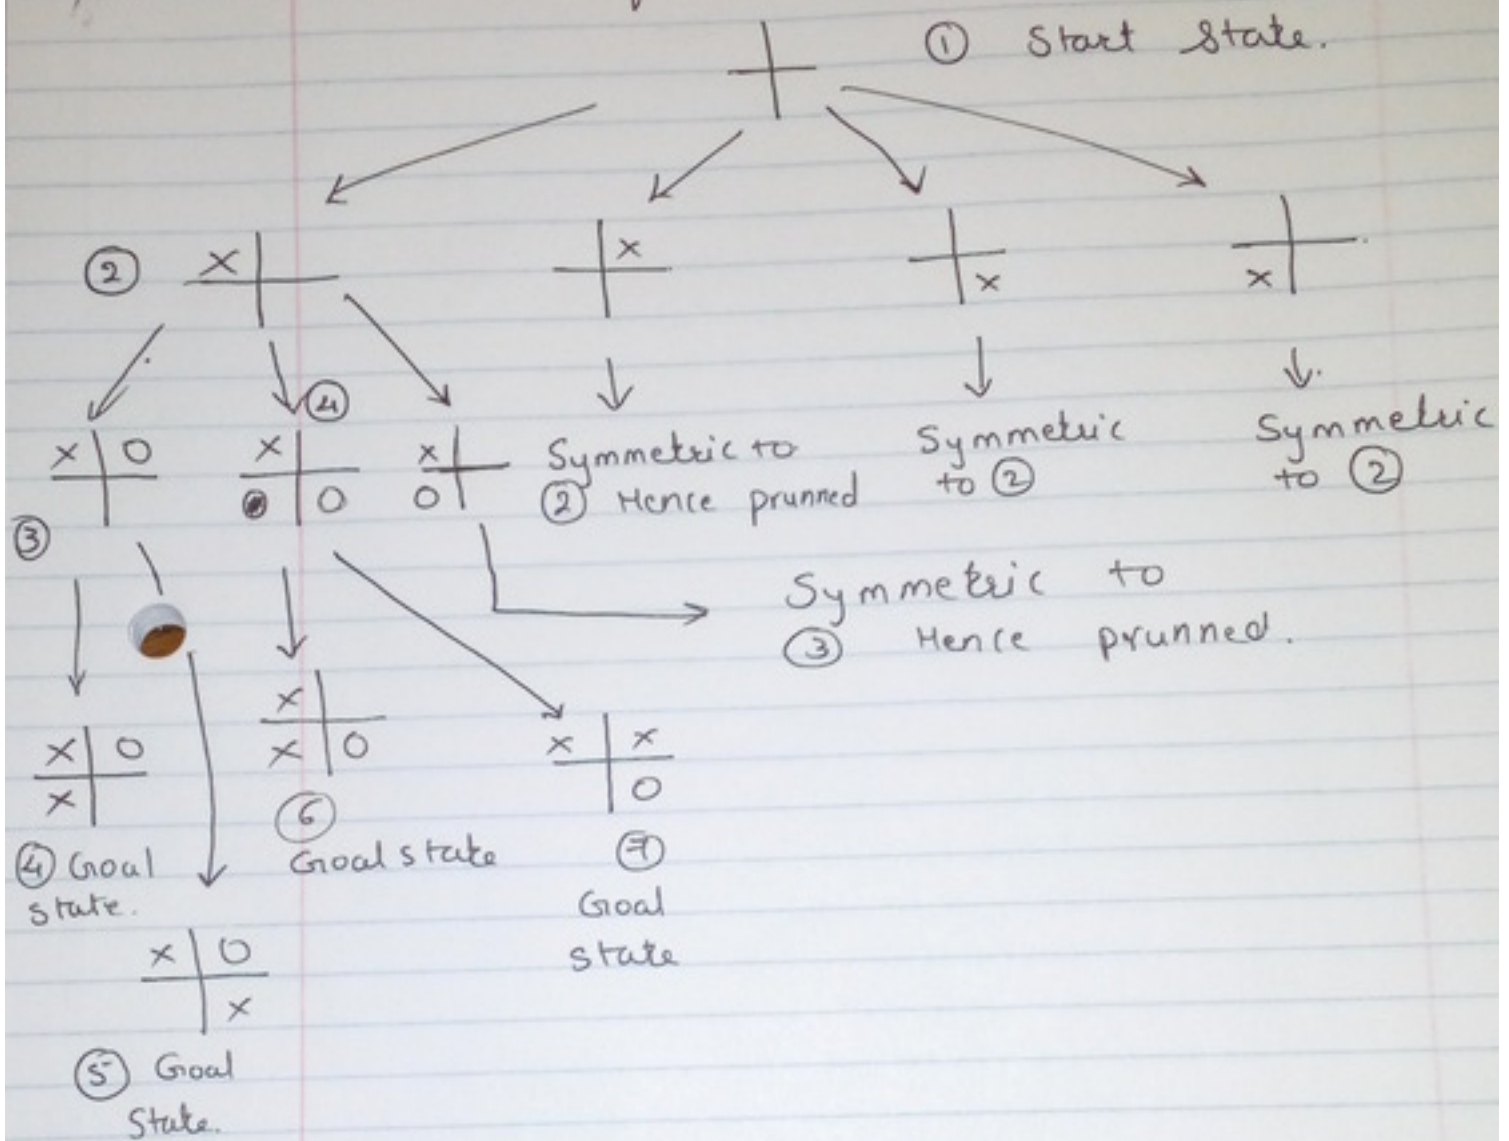 ① Start State.
② X
X
X
X
④
X O
X
O
X
O
Symmetric to
② Hence prunned
Symmetric
to ②
Symmetric
to ②
③
Symmetric to
③ Hence prunned.
X O
X
④ Goal
state.
X
X O
⑥
Goal state
X X
O
⑦
Goal
state
X O
X
⑤ Goal
State.